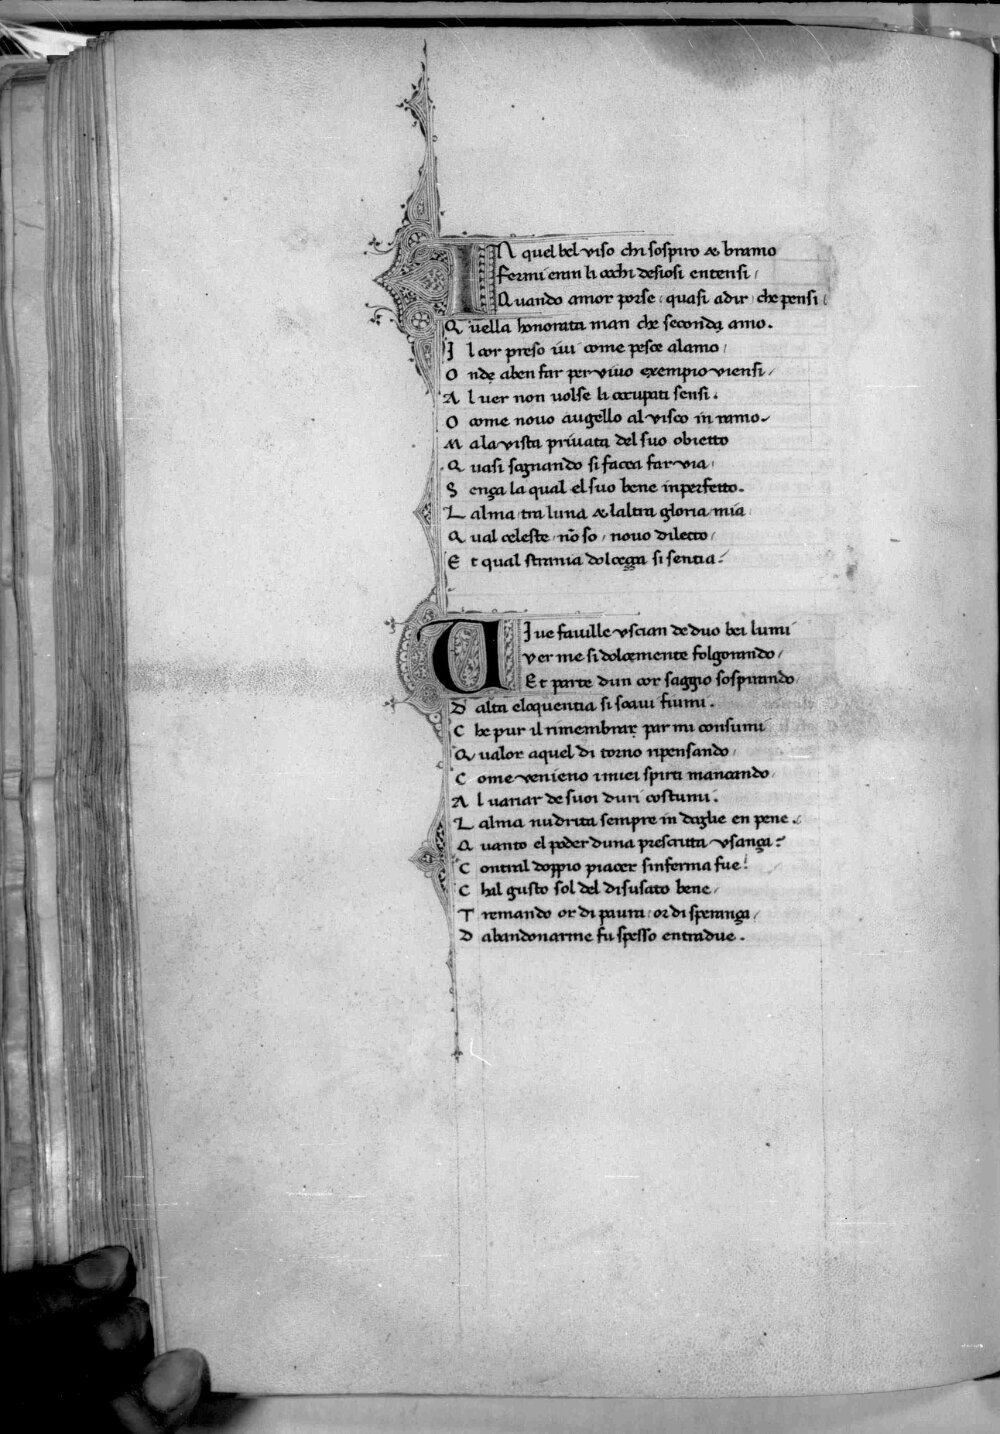 IN quel bel viso chi sospiro & bramo
Fermi eran li occhi desiosi entensi /
Quando amor porse / quasi a dir / che pensi /
Quella honorata man che secondo amo.
Il cor preso ivi come pesce alamo /
Onde aben far per vivo exempio viensi /
Al ver non volse li occupati sensi .
O come novo augello al visco in ramo.
Ma la vista privata del suo obietto
Quasi sognando si facea far via /
Sença la qual el suo bene inperfetto.
Lalma / tra luna & laltra gloria / mia
Qual celeste / nõ so / novo dilecto /
Et qual strania dolceçça si sentia.
VIve faville vscian de duo bei lumi
Ver me si dolcemente folgorando /
Et parte dun cor saggio sospirando
Dalta eloquentia si soavi fiumi .
Che pur il rimembrar par mi consumi
Qualor aquel di torno ripensando /
Come venieno i miei spirti mancando
Al variar de suoi duri costumi .
Lalma nudrita sempre in doglie en pene .
Quanto el poder duna prescritta vsança !
Contral doppio piacer sinferma fue !
Chal gusto sol del disusato bene /
Tremando or di paura / or di sperança /
Dabandonarme fu spesso entradue .